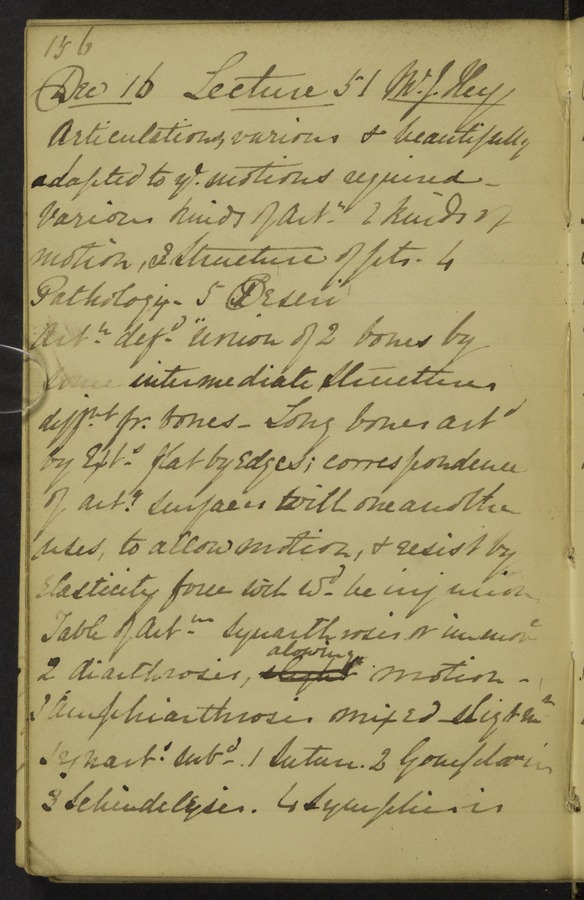 156
Dec 16 Lecture 51 Mr. J. Key
Articulations, various & beautifully
adapted to ye. motions required -
Various kinds of artn. 2 kinds of
motion, 3 Structure of pts. 4
Pathology - 5
Artn. defd. "union of 2 bones by
some intermediate structure
diffrt fr. bones - Long bones artd
by Exts. flat by Edges; correspondence
of artr. surfaces with one another
uses, to allow motion, & resist by
Elasticity force wch wd. be injurious
Table of Artns. Synarthrosis or immove
2 diarthrosis, alowing motion -
3 Amphiarthrosis mixed slight mn
Synarts. subd. 1 Suture. 2 Gomphosis
3 Schindelysis. 4 Symphisis